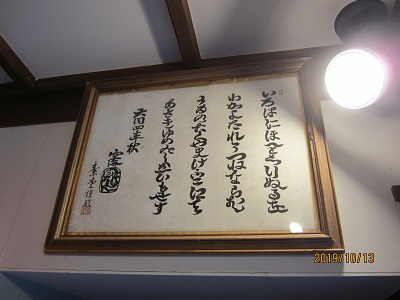 いろはにほへとちりぬるを
わかよたれそつねならむ
うゐのおくやまけふこえて
あさきゆめみしゑひもせす
四年秋
2019/10/13